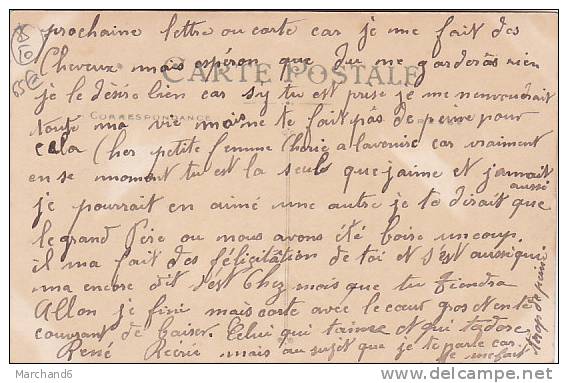 prochaine lettre ou carte car je me fait des
Cheveux mais espéron que Tu me garderas rien
CARTE POSTALE
je le désire bien car sy tu est prise je me
CORRESPONDANCE
toute ma vie mais ne te fait pas de peine pour
cela Cher petite femme Cherie a lavenir car vraiment
en se moment tu est la seule que j'aime et jamait
aussi
je pourrait en aimé une autre je te dirait que
le grand Père ou nous avons été boire un coup
il ma fait des félicitation de toi et s'est aussi qui
ma encore dit s'est Chez mais que tu tiendra
Allon je fini mais carte avec le cœur gros
couvrant de baiser. Celui qui t'aime et qui t'adore
René Recrie mais au sujet que je te parle car
je me fait
trop de peine
delcampe.net
Marchand6